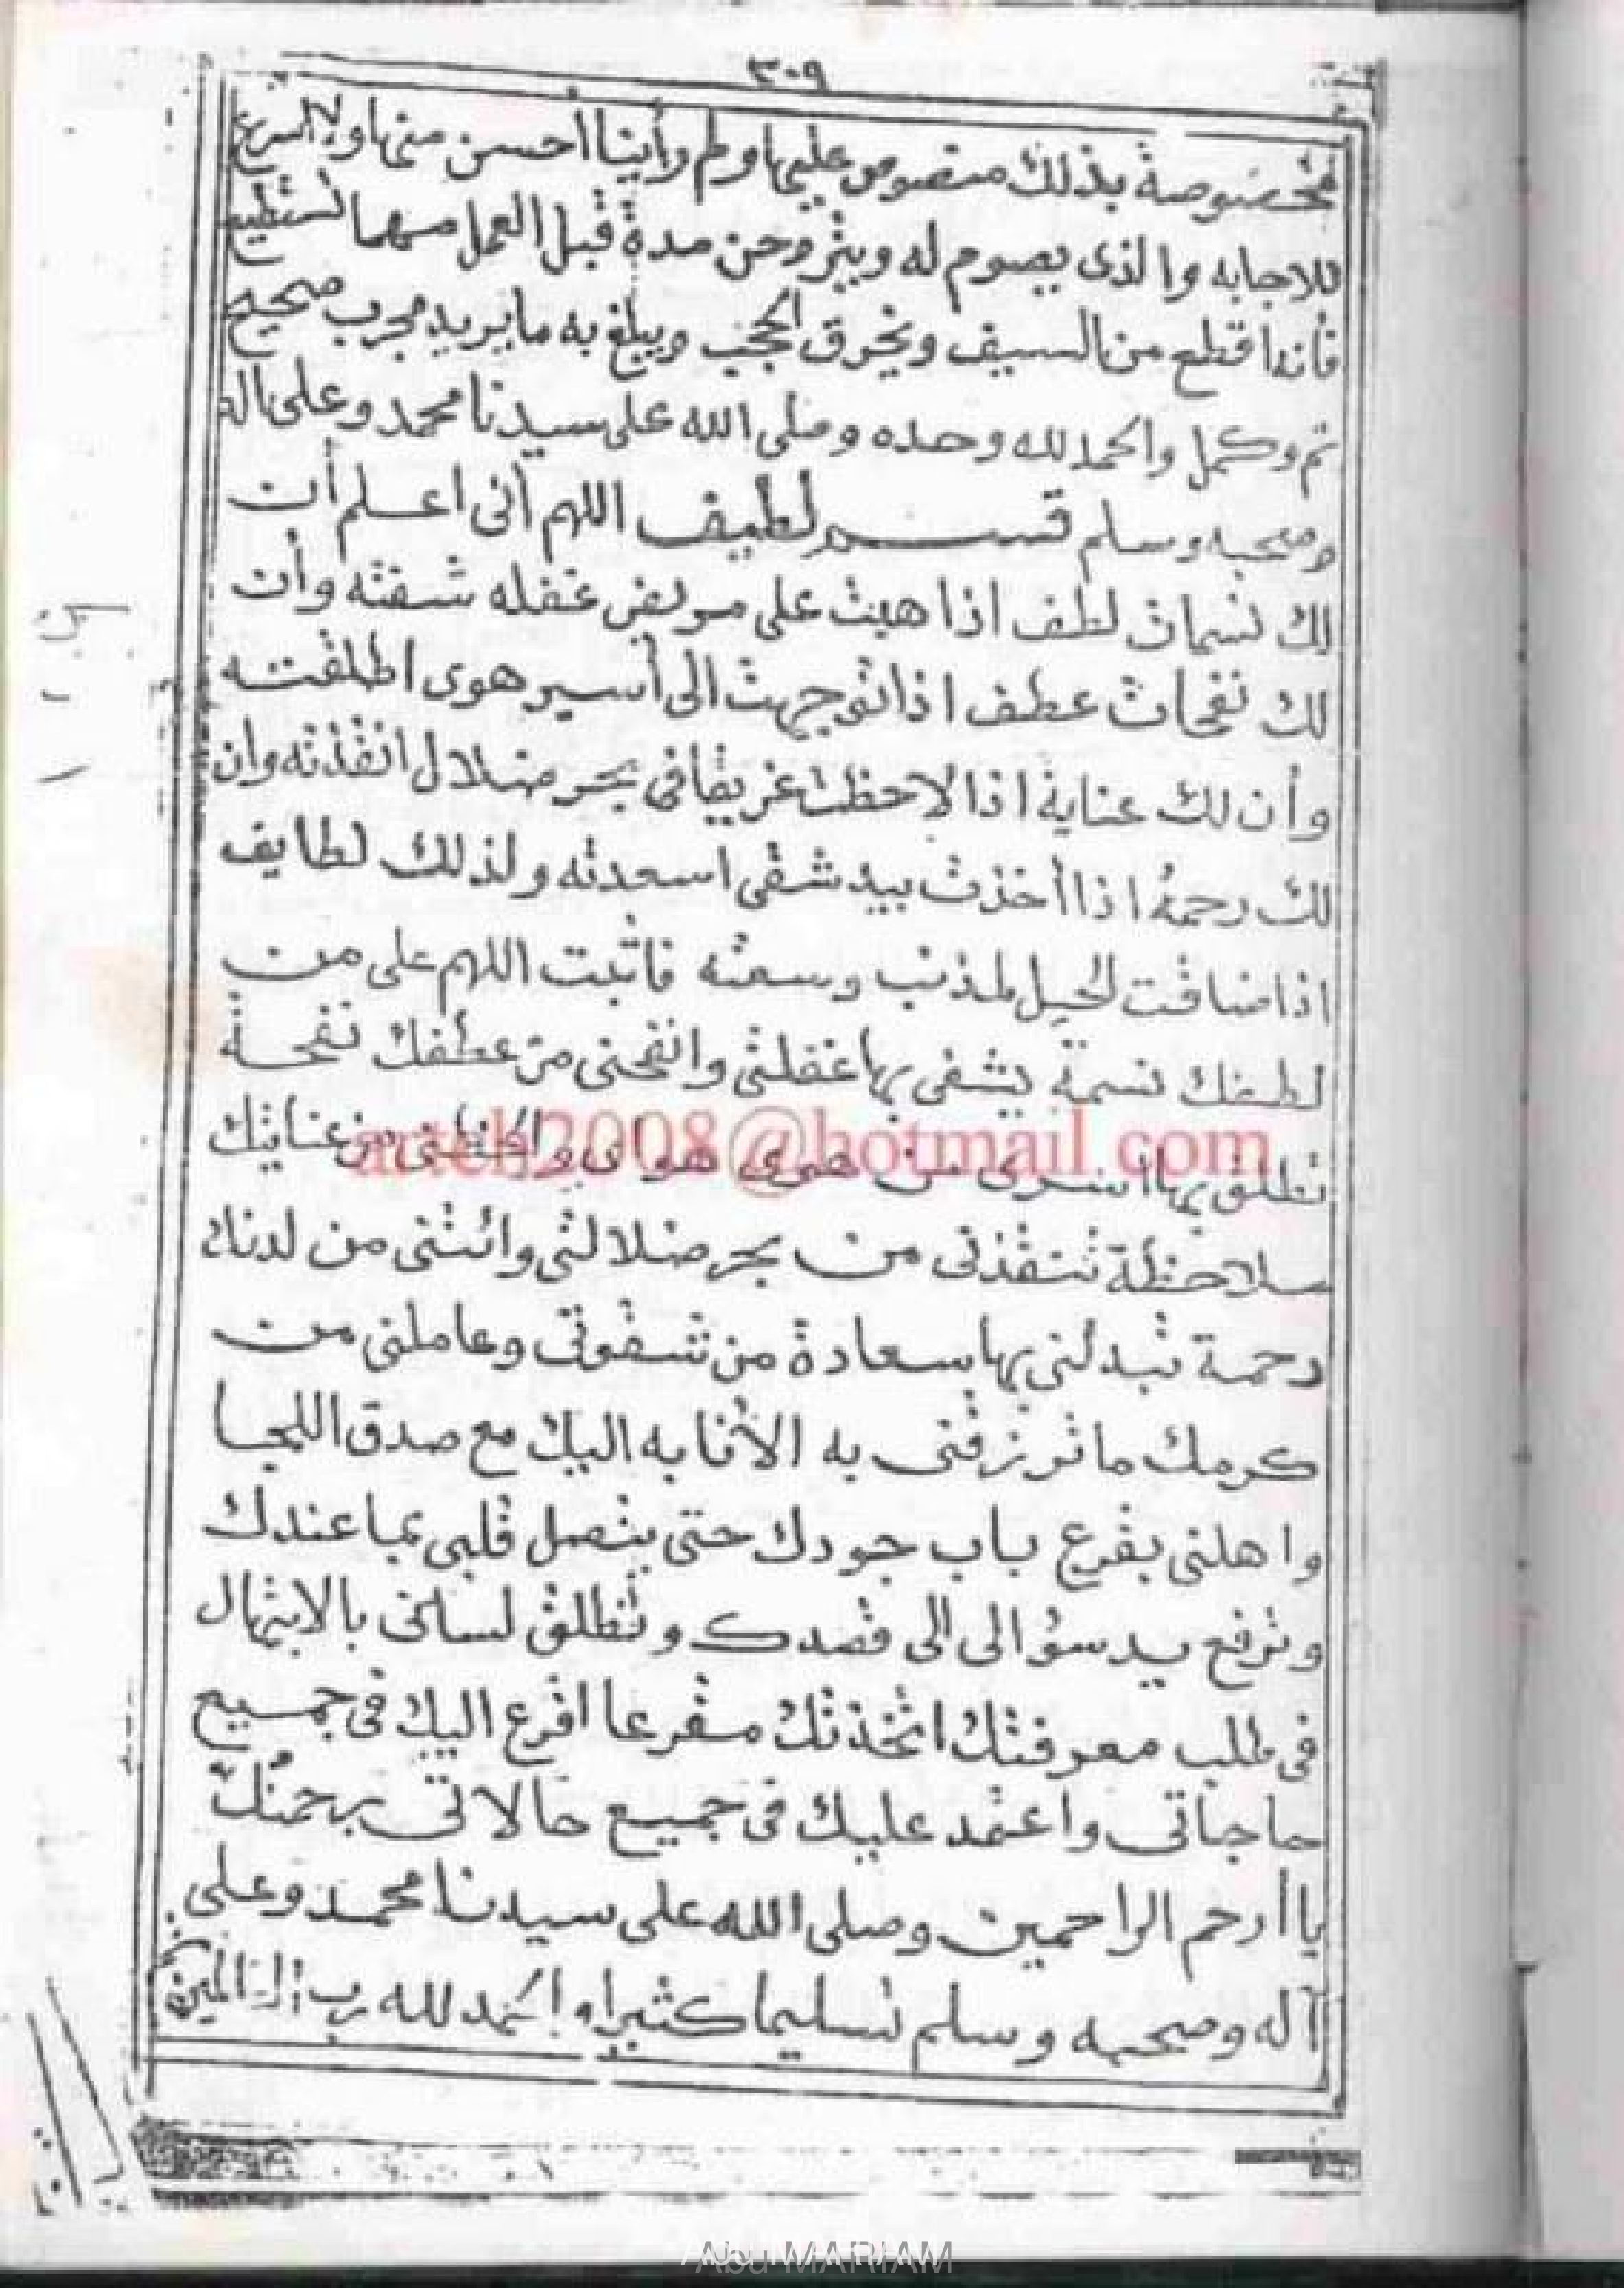 ٣٠٩
مخصوصة بذلك منصوص عليها ولم رأينا أحسن منها ولا اسرع
للاجابه والذى يصوم له ويتروحن مدة قبل العمل مهما تستطيع
فانه اقطع من السيف ويخرق الحجب ويبلغ به ما يريد مجرب صحيح
تم وكمل والحمد لله وحده وصلى الله على سيدنا محمد وعلى اله
وصحبه وسلم قسم لطيف اللهم انى اعلم أن
لك نسمات لطف اذا هبت على مريض غفله شفته وأن
لك نفحات عطف اذا توجهت الى أسير هوى اطلقته
وأن لك عناية اذا لاحظت غريقا فى بحر ضلال انقذته وان
لك رحمة اذا أخذت بيد شقى اسعدته ولذلك لطايف
اذا ضاقت الحيل لمذنب وسعته فاثبت اللهم على من
لطفك نسمة يشفى بها غفلتى وانفحنى من عطفك نفحة
تطلق بها اسرى من هوى والحظنى من عنايتك
arteh2008@hotmail.com
ملاحظة تنقذنى من بحر ضلالتى وائتنى من لدنك
رحمة تبدلنى بها سعادة من شقوتى وعاملنى من
كرمك ما ترزقنى به الأنابه اليك مع صدق اللجا
واهلنى بقرع باب جودك حتى يتصل قلبى بما عندك
وترفع يد سؤالى الى قصدك وتطلق لسانى بالابتهال
فى طلب معرفتك اتخذتك مفزعا افزع اليك فى جميع
حاجاتى واعتمد عليك فى جميع حالاتى برحمتك
يا أرحم الراحمين وصلى الله على سيدنا محمد وعلى
آله وصحبه وسلم تسليما كثيرا والحمد لله رب العالمين
Abu MARIAM